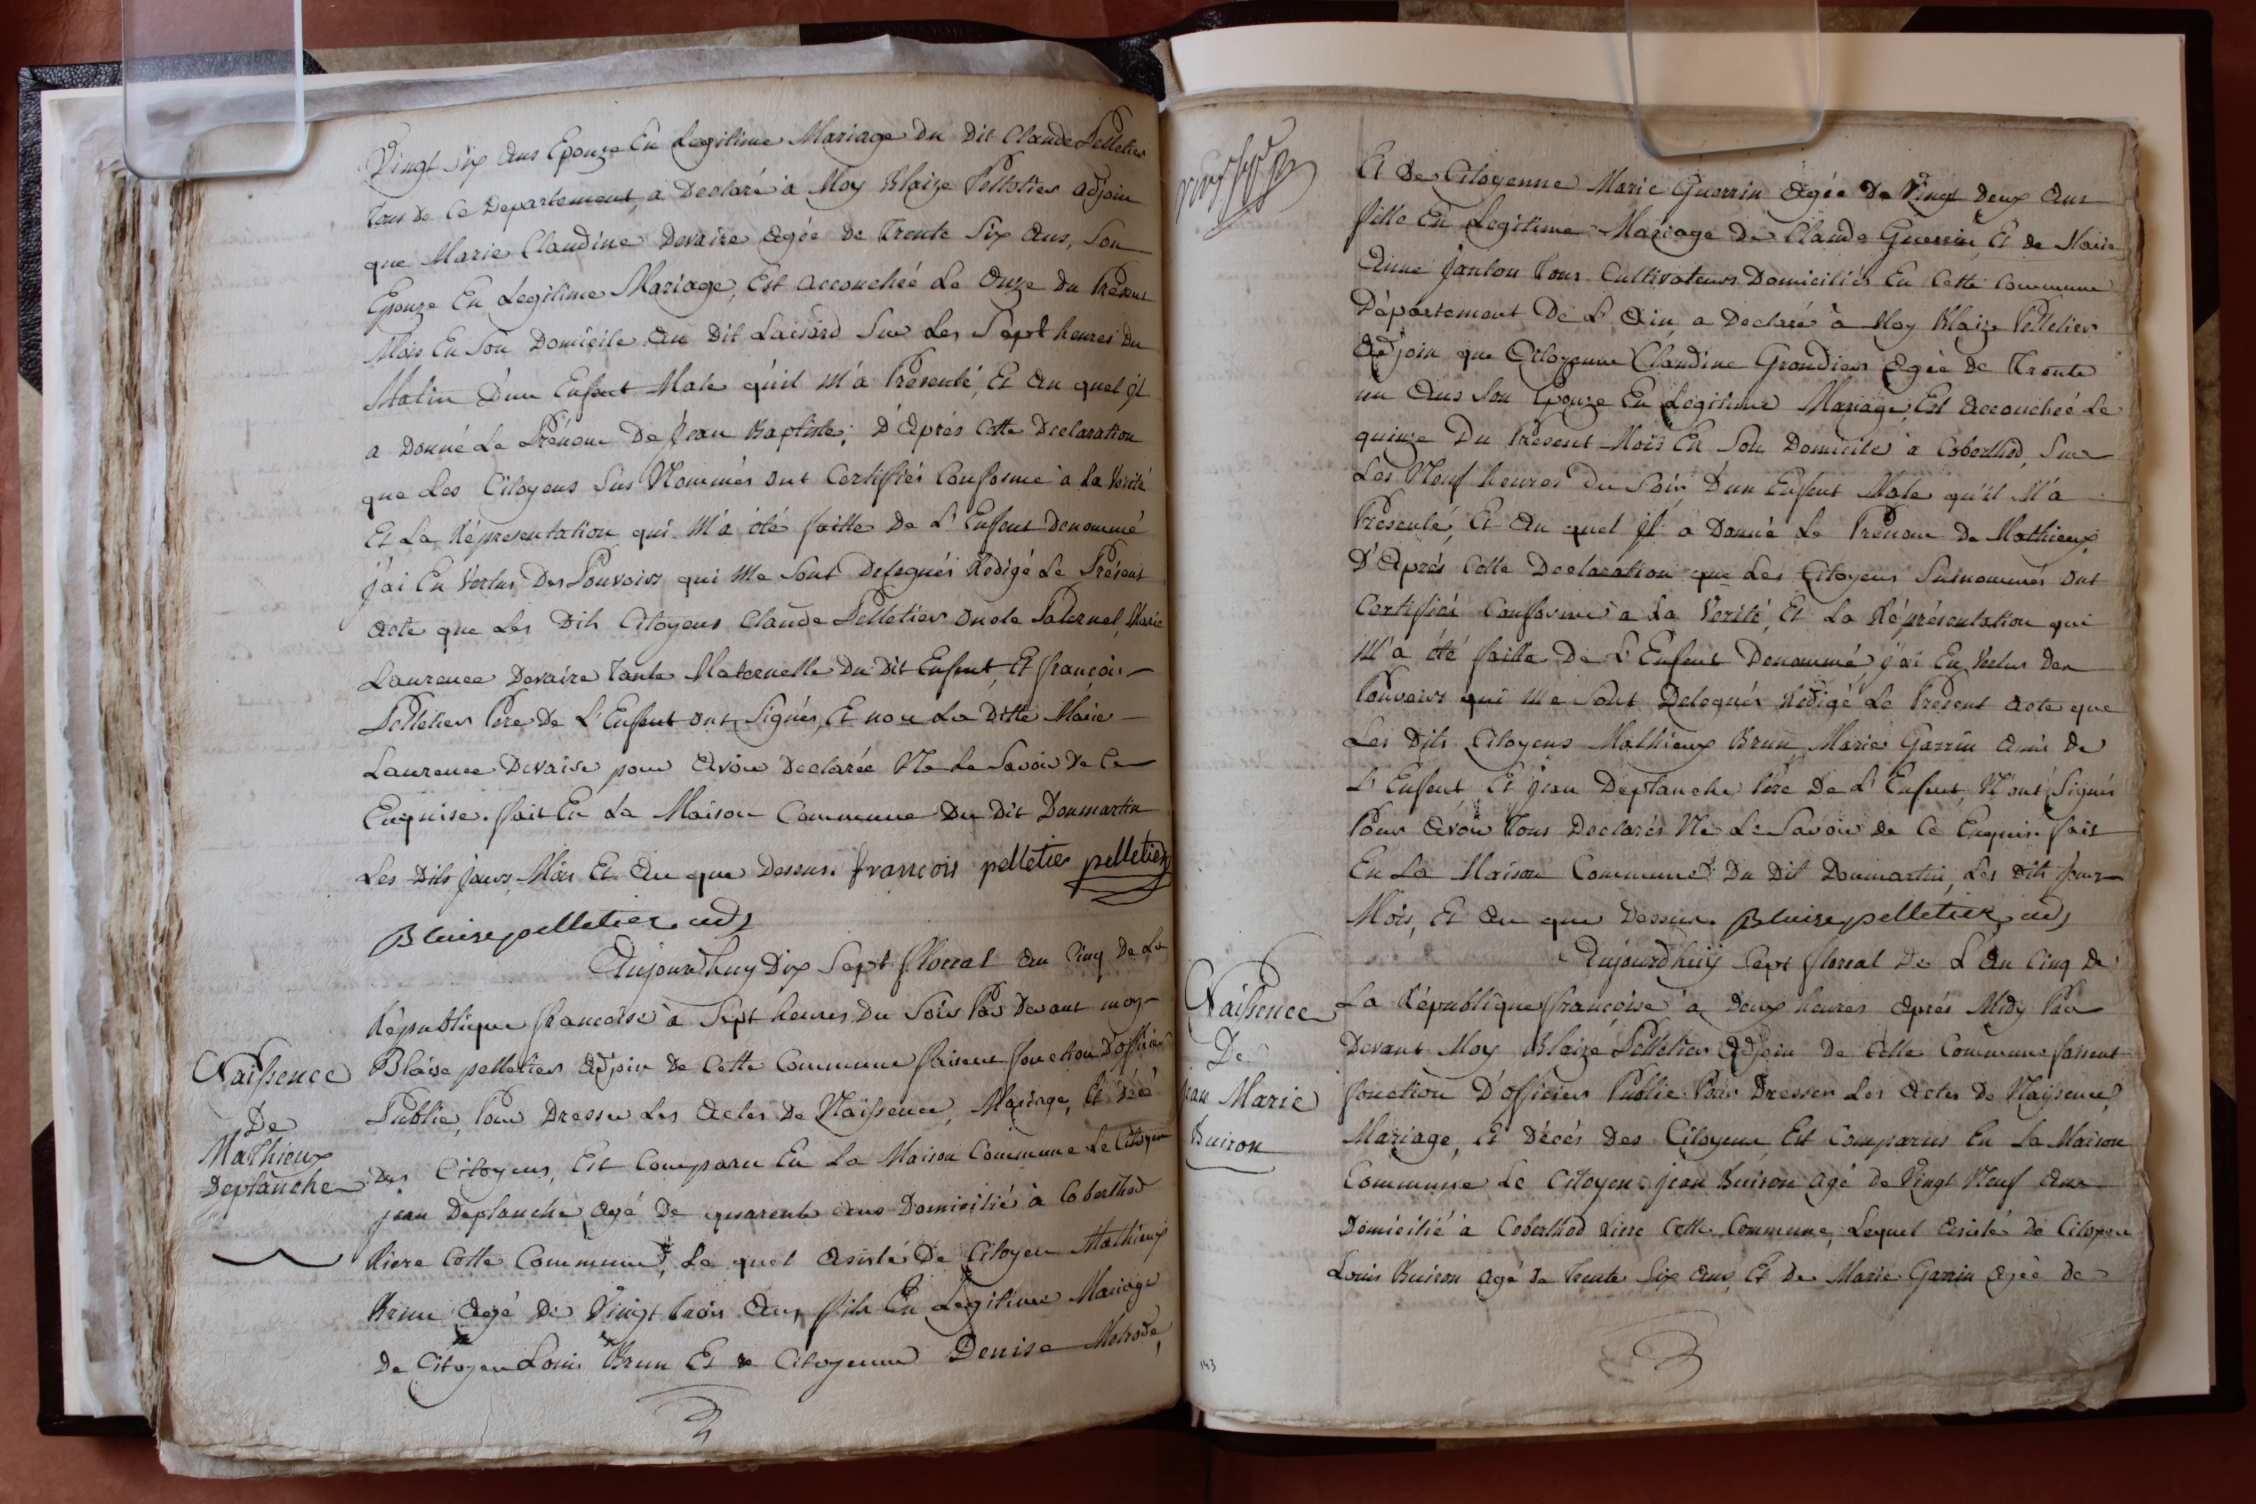 Vingt Six Ans Epouze En Legitime Mariage Du Dit Claude Pelletier
Tous de Ce Departement, a Declaré a Moy Blaize Pelletier adjoin
que Marie Claudine Devaire Agée de Trente Six Ans, Son
Epouze En Légitime Mariage, Est accouchée Le Onze Du Présent
Mois En Son Domicile Au Dit Laisard Sur Les Sept heures Du
Matin D'un Enfent Male qu'il M'a Presenté, Et Au quel jl
a Donné Le Prénom De Jean Baptiste; D'Après Cette Declaration
que Les Citoyens Sus Nommés Ont Certifiés Conforme a La Verité
Et La Répresentation qui M'a été faitte De L'Enfent Denommé
j'ai En Vertus Des Pouvoirs qui Me Sont Delegués Redigé Le Présent
Acte que Les Dits Citoyens Claude Pelletier Oncle Paternel, Marie
Laurence Devaire Tante Maternelle Du Dit Enfent, Et françois
Pelletier Pére De L'Enfent Ont Signés, Et non La Ditte Marie
Laurence Devaise pour Avoir Declarée Ne Le Savoir De Ce
Enquise. fait En La Maison Commune Du Dit Donmartin
Les Dits jours Mois Et An que Dessus. françois pelletier pelletier
Blaise pelletier adj
Aujourdhuy Dix Sept floreal An Cinq De La
République francoise à Sept heures Du Soir Par Devant moy
Blaise pelletier Adjoin de Cette Commune faisent fonction D'officier
Public, Pour Dresser Les Actes De Naissence, Mariage, Et Décé
Des Citoyens, Est Comparu En La Maison Commune Le Citoyen
jean Deplanche Agé De quarente Ans Domicilié à Coberthod
Riere Cette Commune, Le quel Asisté De Citoyen Mathieux
Brun Agé De Vingt trois Ans, fils En Legitime Mariage
De Citoyen Louis Brun Et de Citoyenne Denise
Naissence
De
Mathieux
Deplanche
Et De Citoyenne Marie Guerrin Agée De Vingt Deux Ans
fille En Legitime Mariage De Claude Guerrin, Et de Marie
Anne Janton Tous Cultivateurs Domiciliés En Cette Commune
Département De L'Ain, a Declaré à Moy Blaize Pelletier
Adjoin que Citoyenne Claudine Grandien Agée De Trente
un Ans Son Epouze En Légitime Mariage, Est Accouchée Le
quinze Du Présent Mois En Son Domicile à Coberthod, Sur
Les Neuf heures Du Soir, D'un Enfent Male qu'il M'a
Presenté, Et Au quel jl a Donné Le Prénom De Mathieux,
D'Après Cette Declaration que Les Citoyens Susnommés Ont
Certifiés Conforme a La Verité, Et La Réprésentation qui
M'a été faitte De L'Enfent Denommé, j'ai En Vertus Des
Pouvoirs qui Me Sont Delegués Redigé Le Présent Acte que
Les Dits Citoyens Mathieux Brun, Marie Garrin Amis De
L'Enfent, Et Jean Deplanche Pére De L'Enfent, N'ont Signés
Pour Avoir Tous Declarés Ne Le Savoir de Ce Enquis. fait
En La Maison Commune Du Dit Donmartin, Les Dits jours
Mois, Et An que Dessus. Blaise pelletier adj
Aujourdhuy Sept floreal De L'An Cinq De
La République françoise à Deux heures Après Midy Par
Devant Moy Blaize Pelletier Adjoin De Cette Commune faisent
fonction D'officier Public Pour Dresser Les Actes De Naissence,
Mariage, Et Décés Des Citoyens, Est Comparus En La Maison
Commune Le Citoyen jean Buiron Agé de Vingt Neuf Ans
Domicilié à Coberthod riere Cette Commune, Lequel Asisté de Citoyen
Louis Buiron Agé de Trente Six Ans, Et De Marie Garrin Agée De
Naissence
De
jean Marie
Buiron
143